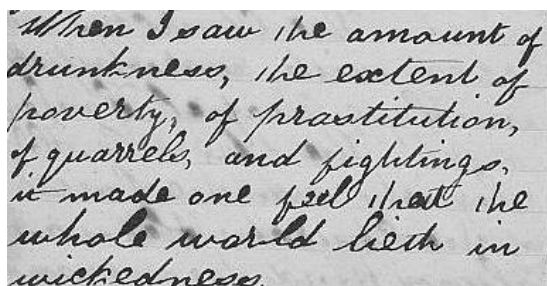 When I saw the amount of
drunkness, the extent of
poverty, of prastitution,
of quarrels, and fightings,
it made one feel that the
whole world lieth in
wickedness.